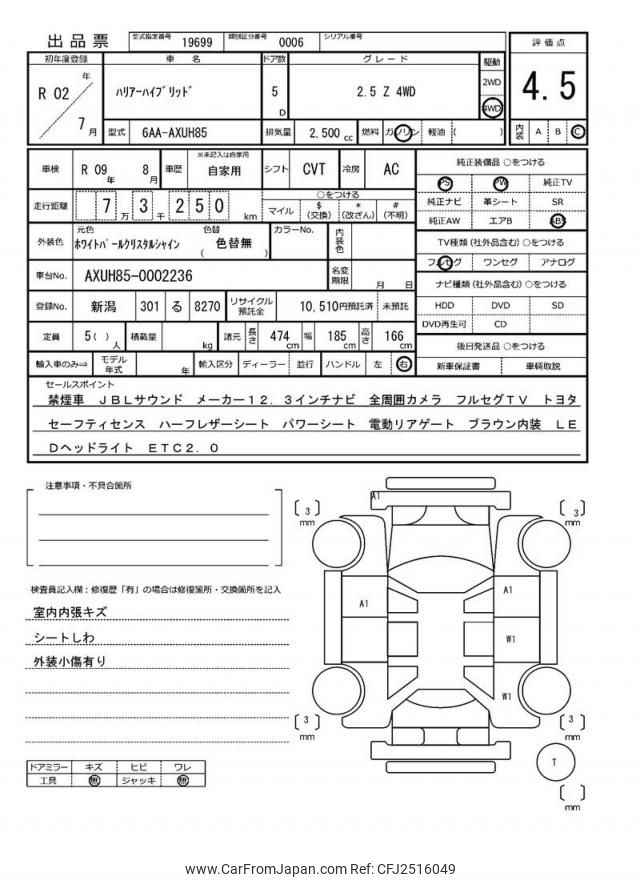 出品票
型式指定番号 19699 類別区分番号 0006 シリアル番号
初年度登録 車名 ドア数 グレード 駆動 評価点
R 02 年 7 月
ハリアーハイブリッド 5 D 2.5 Z 4WD 2WD 4WD 4.5
型式 6AA-AXUH85 排気量 2.500 cc 燃料 ガソリン 軽油 ( ) 内装 A B C
車検 R 09 年 8 月 車歴 ※未記入は自家用 自家用 シフト CVT 冷房 AC
純正装備品 ○をつける
PS PW 純正TV
純正ナビ 革シート SR
純正AW エアB ABS
走行距離 7 万 3 千 2 5 0 km ○をつける マイル $ (交換) * (改ざん) # (不明)
TV種類 (社外品含む) ○をつける
フルセグ ワンセグ アナログ
外装色 元色 ホワイトパールクリスタルシャイン 色替 ( 色替無 ) カラーNo. 内装色
ナビ種類 (社外品含む) ○をつける
HDD DVD SD
DVD再生可 CD
車台No. AXUH85-0002236 名変期限 月 日
登録No. 新潟 301 る 8270 リサイクル預託金 10,510円預託済 未預託
定員 5( ) 人 積載量 kg 諸元 長さ 474 cm 幅 185 cm 高さ 166 cm
後日発送品 ○をつける
新車保証書 車輌取説
輸入車のみ⇒ モデル年式 年 輸入区分 ディーラー 並行 ハンドル 左 右
セールスポイント
禁煙車 JBLサウンド メーカー12.3インチナビ 全周囲カメラ フルセグTV トヨタ
セーフティセンス ハーフレザーシート パワーシート 電動リアゲート ブラウン内装 LE
Dヘッドライト ETC2.0
注意事項・不具合箇所
検査員記入欄:修復歴「有」の場合は修復箇所・交換箇所を記入
室内内張キズ
シートしわ
外装小傷有り
ドアミラー キズ ヒビ ワレ
工具 無 ジャッキ 無
A1
[ 3 ] mm
[ 3 ] mm
A1
A1
W1
W1
[ 3 ] mm
[ 3 ] mm
T
[ ] mm
www.CarFromJapan.com Ref: CFJ2516049